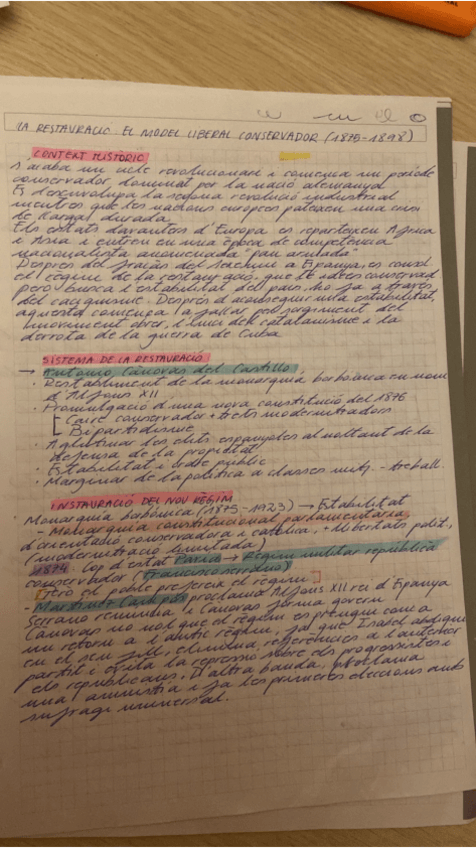 LA RESTAURACIÓ EL MODEL LIBERAL CONSERVADOR (1875-1898)
CONTEXT HISTÒRIC
S'acaba un cicle revolucionari i comença un període
conservador dominat per la nació alemanya
Es desenvolupa la segona revolució industrial
mentres que les nacions europees pateixen una crisi
de llarga durada.
Els estats davanters d'Europa es reparteixen Àfrica
i Àsia i entren en una època de competència
nacionalista anomenada "pau armada"
Després del fracàs del Sexenni a Espanya, es consol
el règim de la restauració, que té valors conservad
però busca l'estabilitat del país, ho fa a través
del caciquisme. Després d'aconseguir una estabilitat,
aquesta comença a fallar pel sorgiment del
moviment obrer, l'inici del catalanisme i la
derrota de la guerra de Cuba.
SISTEMA DE LA RESTAURACIÓ
→ Antonio Cánovas del Castillo,
· Restabliment de la monarquia borbònica en nom
d'Alfons XII
· Promulgació d'una nova constitució del 1876
Caire conservador + trets modernitzadors
Bipartidisme
· Aglutinar les elits espanyoles al voltant de la
defensa de la propietat
· Estabilitat i ordre públic
· Marginar de la política a classes mitj. - treball.
INSTAURACIÓ DEL NOU RÈGIM
· Monarquia borbònica (1875-1923) → Estabilitat
- Monarquia constitucional parlamentària,
d'orientació conservadora i catòlica, + llibertats polít,
(modernització limitada)
1874: Cop d'estat Pavía → Règim militar república
conservador (Francisco Serrano)
Però el poble prefereix el règim
- Martínez Campos proclama Alfons XII rei d'Espanya
Serrano renuncia i Cánovas forma govern
Cánovas no vol que el règim es prengue com a
un retorn a l'antic règim, ja que Isabel abdique
en el seu fill, elimina, referències a l'anterior
partit i evita la repressió sobre els progressistes i
els republicans. D'altra banda, proclama
una amnistia i fa les primeres eleccions amb
sufragi universal.